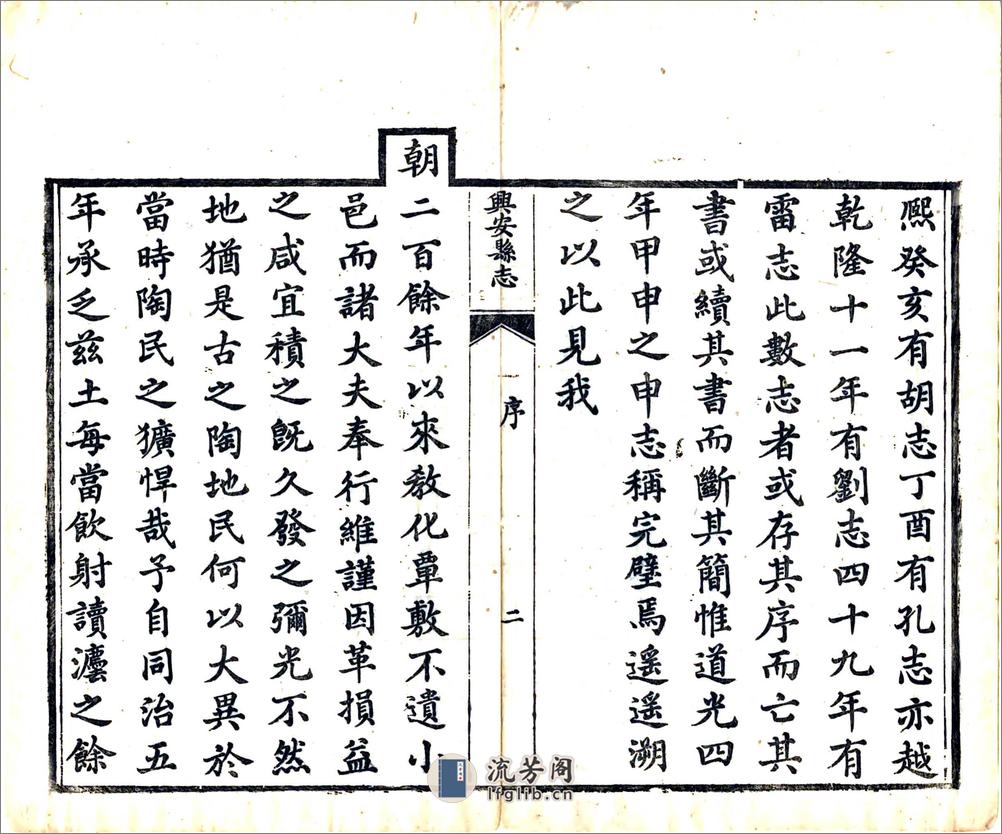 熈癸亥有胡志丁酉有孔志亦越
乾隆十一年有劉志四十九年有
雷志此數志者或存其序而亡其
書或續其書而斷其簡惟道光四
年甲申之申志稱完璧焉遥遥溯
之以此見我
興安縣志
序
二
朝二百餘年以來教化覃敷不遺小
邑而諸大夫奉行維謹因革損益
之咸宜積之既久發之彌光不然
地猶是古之陶地民何以大異於
當時陶民之獷悍哉予自同治五
年承乏兹土每當飲射讀灋之餘
流芳阁
lfglib.cn